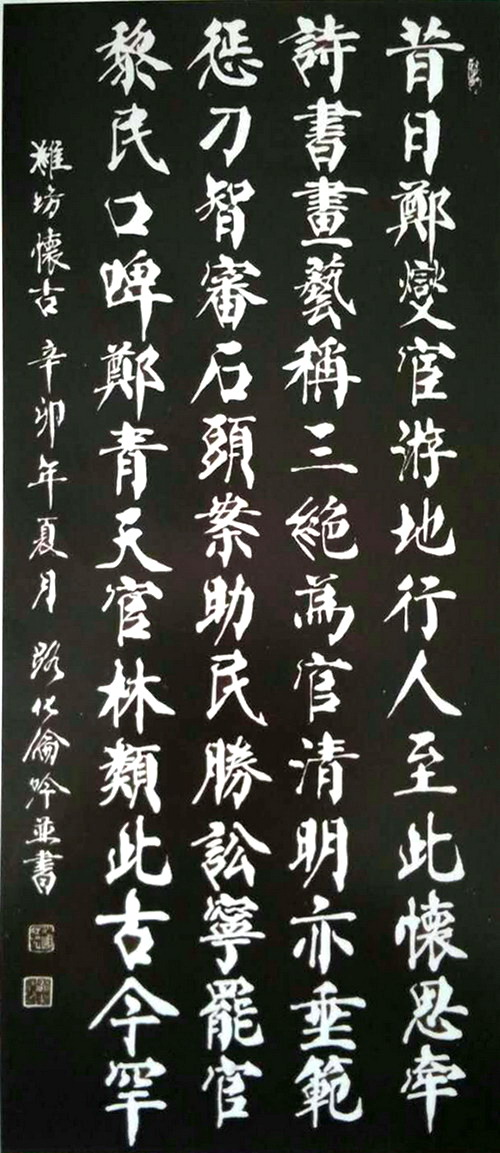 昔日鄭燮宦游地行人至此懷思牽
詩書畫藝稱三絶為官清明亦垂範
懲刀智審石頭案助民勝訟寧罷官
黎民口啤鄭青天官林類此古今罕
濰坊懷古 辛卯年夏月 路化倫吟並書